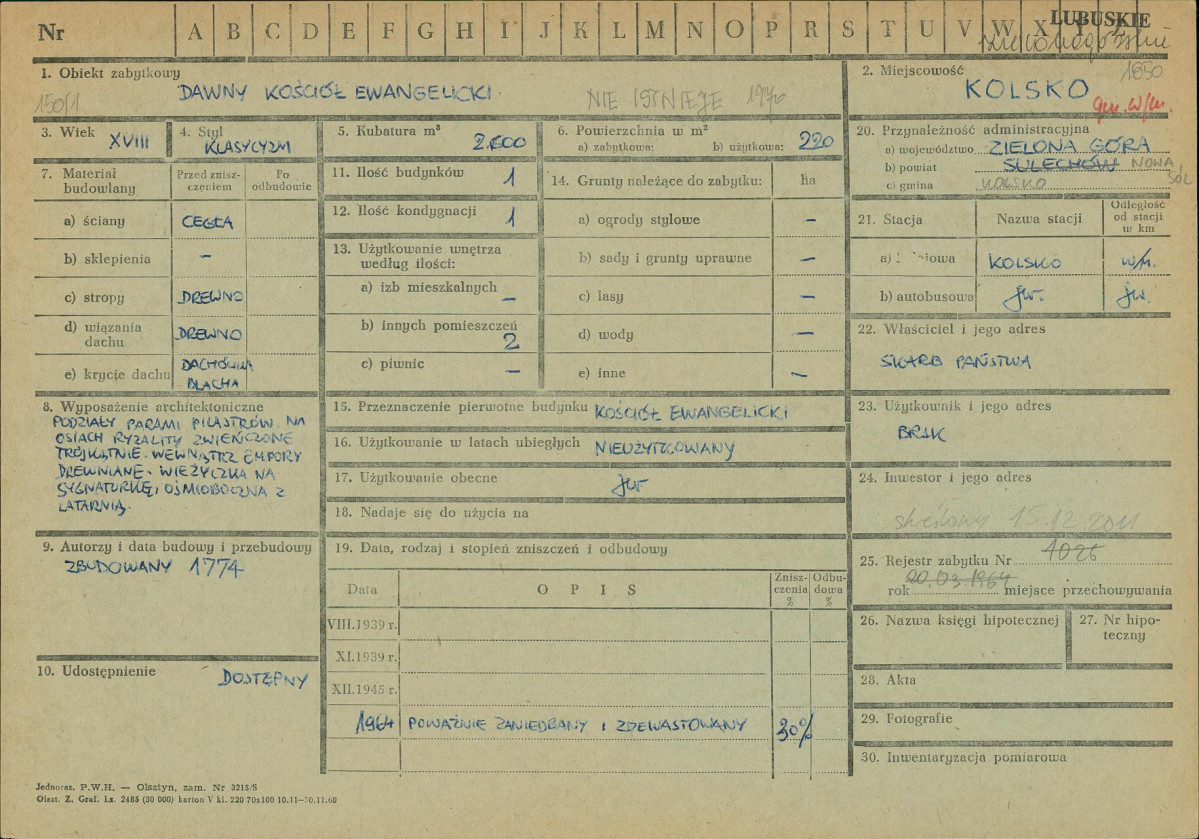 Nr A B C D E F G H I J K L M N O P R S T U V W X Y Z
LUBUSKIE
1. Obiekt zabytkowy
150/1 DAWNY KOŚCIÓŁ EWANGELICKI NIE ISTNIEJE 1976
2. Miejscowość 1650
KOLSKO
gm. w/m.
3. Wiek XVIII
4. Styl
KLASYCYZM
5. Kubatura m³
2.600
6. Powierzchnia w m²
a) zabytkowa: b) użytkowa: 220
20. Przynależność administracyjna
a) województwo ZIELONA GÓRA
b) powiat SULECHÓW NOWA SÓL
c) gmina KOLSKO
7. Materiał budowlany
Przed znisz-
czeniem
Po
odbudowie
a) ściany CEGŁA
b) sklepienia –
c) stropy DREWNO
d) wiązania
dachu DREWNO
e) krycie dachu DACHÓWKA
BLACHA
11. Ilość budynków 1
12. Ilość kondygnacji 1
13. Użytkowanie wnętrza
według ilości:
a) izb mieszkalnych –
b) innych pomieszczeń
2
c) piwnic –
14. Grunty należące do zabytku: ha
a) ogrody stylowe –
b) sady i grunty uprawne –
c) lasy –
d) wody –
e) inne –
21. Stacja Nazwa stacji Odległość
od stacji
w km
a) KOLSKO w/m.
b) autobusowa jw. jw.
22. Właściciel i jego adres
SKARB PAŃSTWA
8. Wyposażenie architektoniczne
PODZIAŁY PARAMI PILASTRÓW. NA
OSIACH RYZALITY ZWIEŃCZONE
TRÓJKĄTNIE. WEWNĄTRZ EMPORY
DREWNIANE. WIEŻYCZKA NA
SYGNATURKĘ, OŚMIOBOCZNA Z
LATARNIĄ.
15. Przeznaczenie pierwotne budynku KOŚCIÓŁ EWANGELICKI
16. Użytkowanie w latach ubiegłych NIEUŻYTKOWANY
17. Użytkowanie obecne jw
18. Nadaje się do użycia na
23. Użytkownik i jego adres
BRAK
24. Inwestor i jego adres
skreślony 15.12.2011
9. Autorzy i data budowy i przebudowy
ZBUDOWANY 1774
19. Data, rodzaj i stopień zniszczeń i odbudowy
Data O P I S Znisz-
czenia
%
Odbu-
dowa
%
VIII.1939 r.
XI.1939 r.
XII.1945 r.
1964 POWAŻNIE ZANIEDBANY I ZDEWASTOWANY 30%
25. Rejestr zabytku Nr 1026
rok 20.03.1964 miejsce przechowywania
26. Nazwa księgi hipotecznej
27. Nr hipo-
teczny
10. Udostępnienie
DOSTĘPNY
28. Akta
29. Fotografie
30. Inwentaryzacja pomiarowa
Jednoraz. P.W.H. — Olsztyn, zam. Nr 3215/S
Olszt. Z. Graf. Lz. 2485 (30 000) karton V kl. 220 70x100 10.11—30.11.60